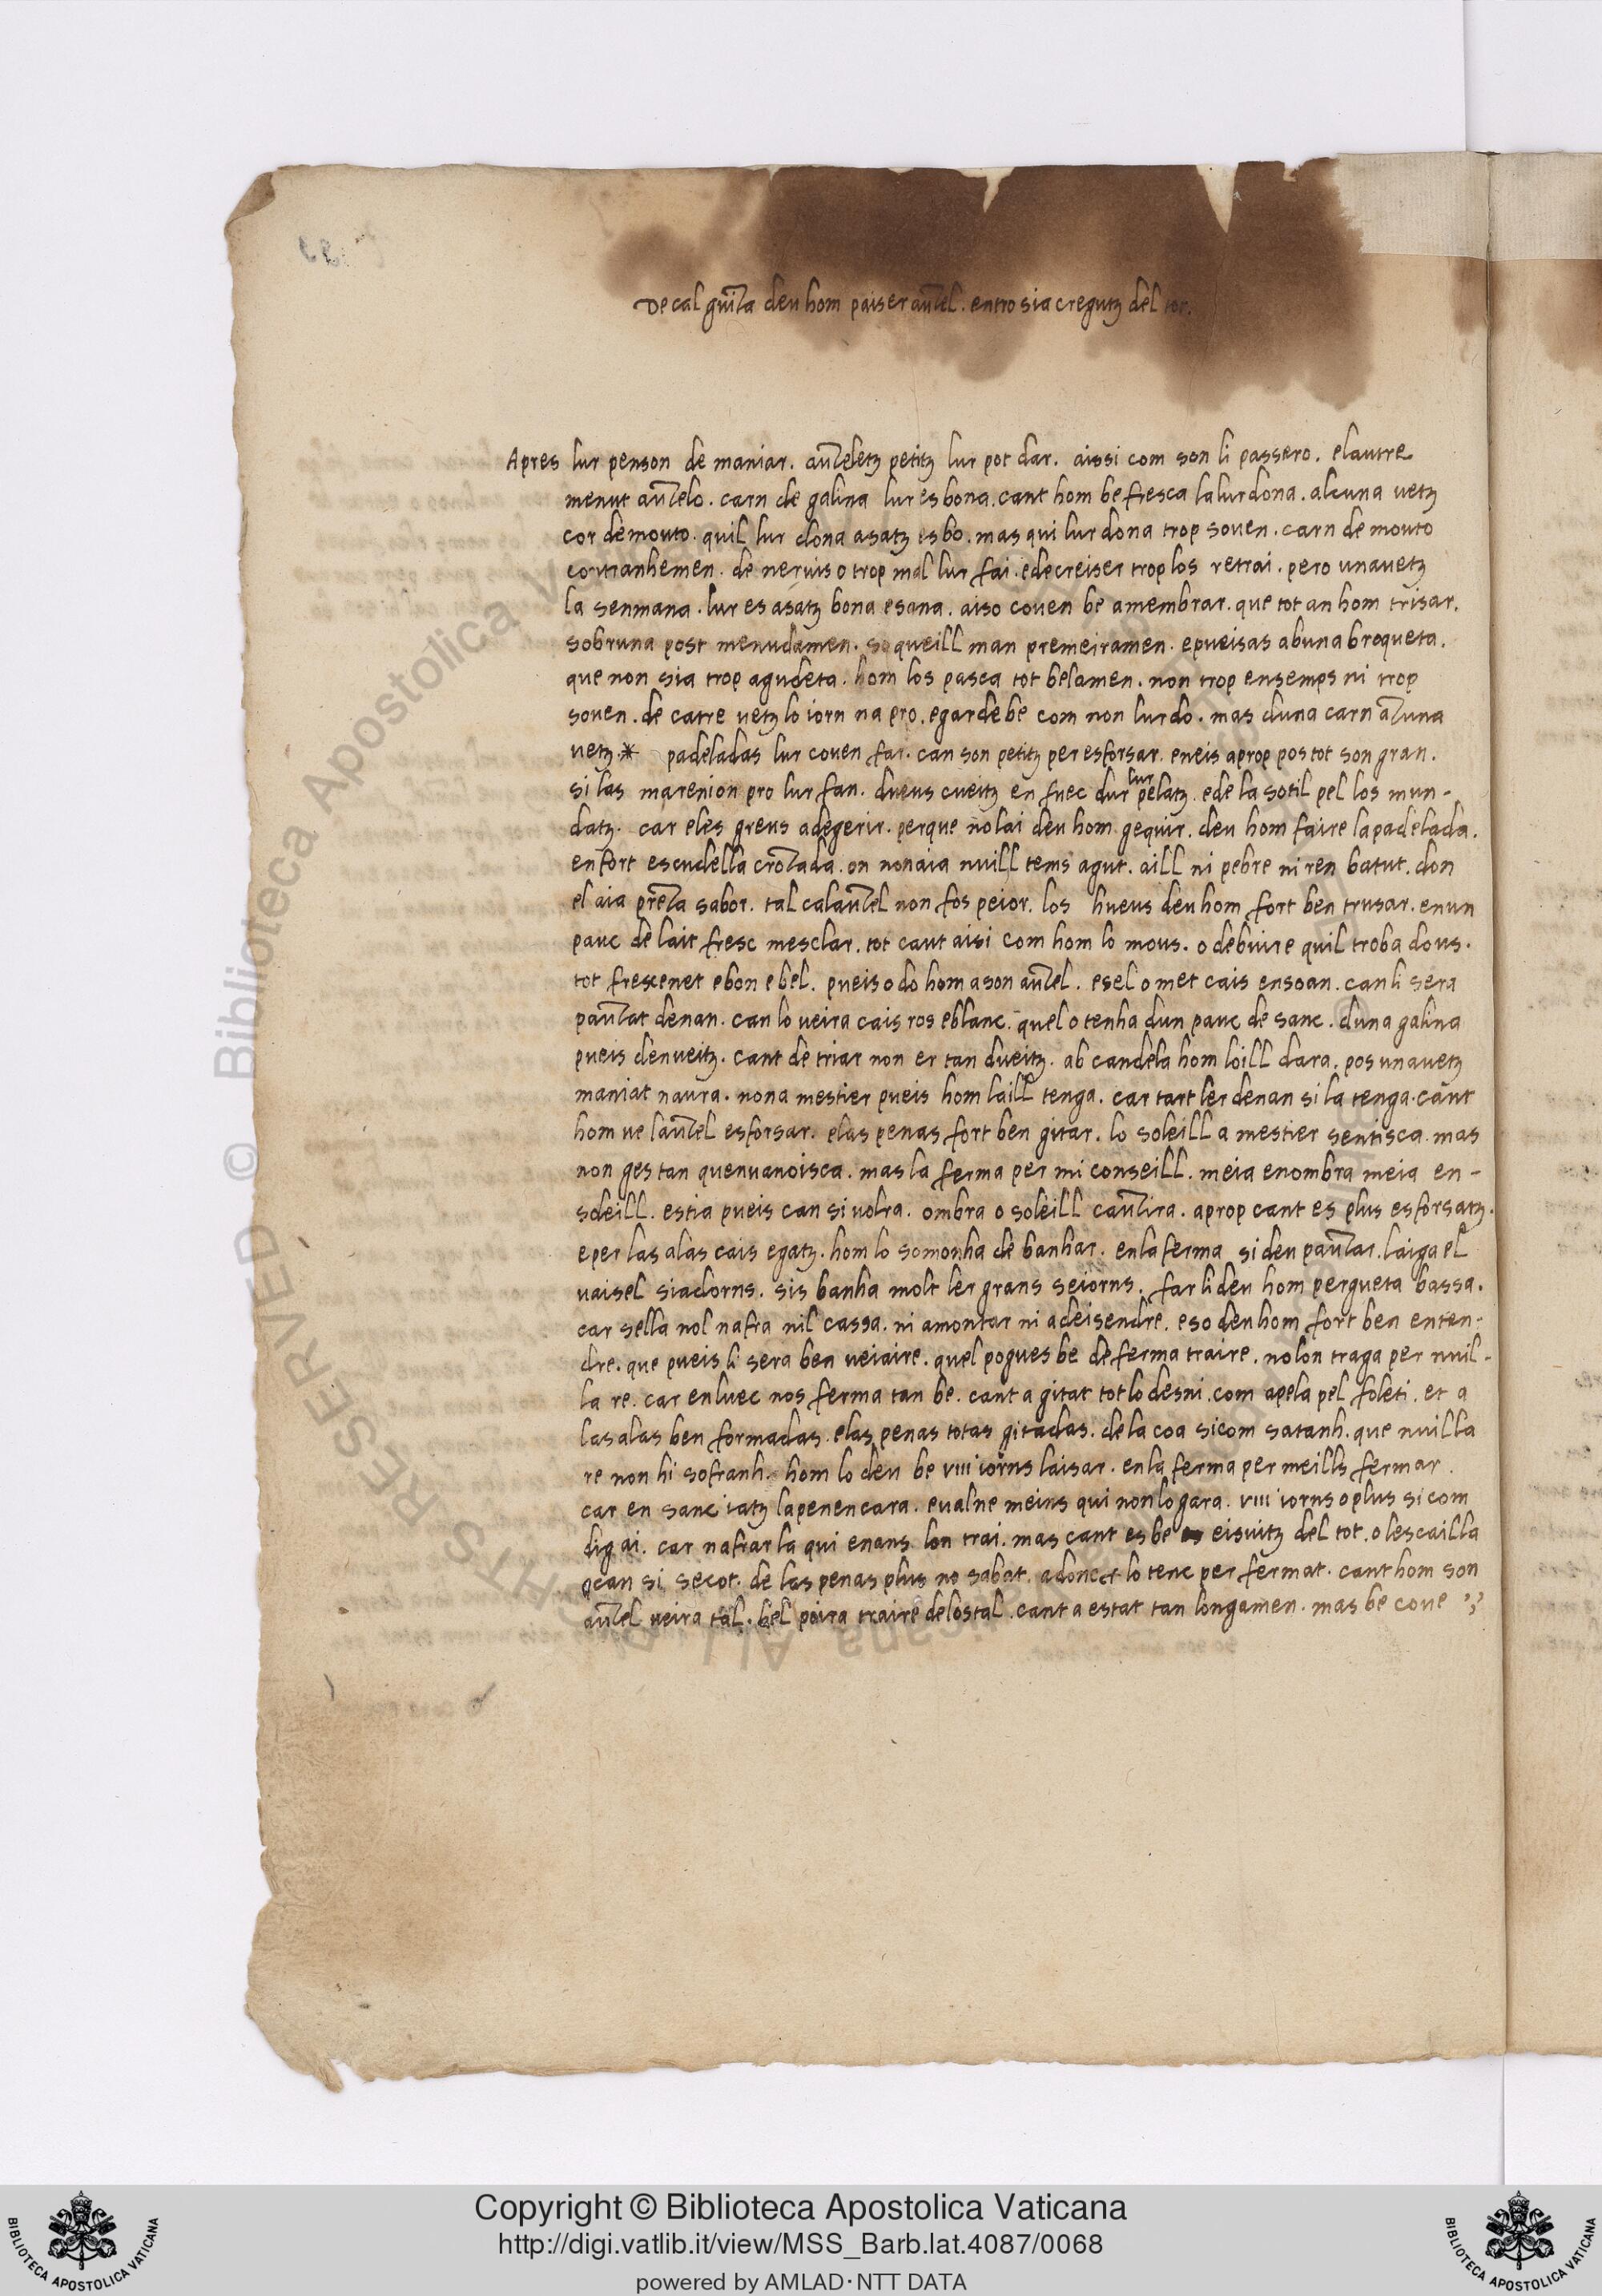 De cal guiza deu hom paiser auzel. entro sia cregutz del tot.
Apres lur penson de maniar. auzeletz petitz lur pot dar. aissi com son li passero. elautre
menut auzelo. carn de galina lur es bona. cant hom be fresca lalur dona. alcuna vetz
cor de mouto. quil lur dona asatz es bo. mas qui lur dona trop soven. carn de mouto
contranhemen. de neruis o trop mal lur fai. e decreiser trop los retrai. pero una vetz
la senmana. lur es asatz bona esana. aiso coven be amembrar. que tot an hom trisar.
sobruna post menudamen. so queill man premeiramen. epueisas abuna broqueta.
que non sia trop agudeta. hom los pasca tot belamen. non trop ensemps ni trop
soven. de catre vetz lo iorn na pro. egarde be com non lur do. mas duna carn a una
vetz.* padeladas lur coven far. can son petitz per esforsar. eneis aprop pos tot son gran.
si las marenion pro lur fan. dueus cueitz en fuec dur lur pelatz. ede la sotil pel los mun-
datz. car eles greus adegerir. perque nolai deu hom gequir. deu hom faire la padelada.
en fort escudella crozada. on non aia nuill tems agut. aill ni pebre ni ren batut. don
el aia preza sabor. tal cal auzel non fos peior. los hueus deu hom fort ben trusar. en un
pauc de lait fresc mesclar. tot caut aisi com hom lo mous. o de buire quil troba dous.
tot frescenet ebon ebel. pueis o do hom a son auzel. esel o met cais ensoan. can li sera
pauzat denan. can lo veira cais ros eblanc. quel o tenha dun pauc de sanc. duna galina
pueis denveitz. cant de triar non er tan dueitz. ab candela hom loill dara. pos una vetz
maniat naura. nona mestier pueis hom laill tenga. car tart ler denan si la tenga. cant
hom ve lauzel esforsar. elas penas fort ben gitar. lo soleill a mestier sentisca. mas
non ges tan quenvanoisca. mas la ferma per mi conseill. meia en ombra meia en-
soleill. estia pueis can si volra. ombra o soleill cauzira. aprop cant es plus esforsatz.
eper las alas cais egatz. hom lo somonha de banhar. en la ferma si deu pauzar. laiga el
vaisel siadorns. sis banha molt ler grans seiorns. far li deu hom pergueta bassa.
car sella nol nafra nil cassa. ni amontar ni adeisendre. eso deu hom fort ben enten-
dre. que pueis li sera ben veiaire. quel pogues be de ferma traire. nolon traga per nuil-
la re. car en luec nos ferma tan be. cant a gitat tot lo desni. com apela pel foleti. et a
las alas ben formadas. elas penas totas gitadas. de la coa sicom satanh. que nuilla
re non hi sofranh. hom lo deu be viii iorns laisar. en la ferma per meills fermar.
car en sanc iatz la pen encara. e valne meins qui non lo gara. viii iorns o plus si com
dig ai. car nafrar la qui enans lon trai. mas cant es be eisuitz del tot. o lescailla
can si secot. de las penas plus no sabat. adonc lo tenc per fermat. cant hom son
auzel veira tal. bel poira traire de lostal. cant a estat tan longamen. mas be cove
Copyright © Biblioteca Apostolica Vaticana
http://digi.vatlib.it/view/MSS_Barb.lat.4087/0068
powered by AMLAD·NTT DATA